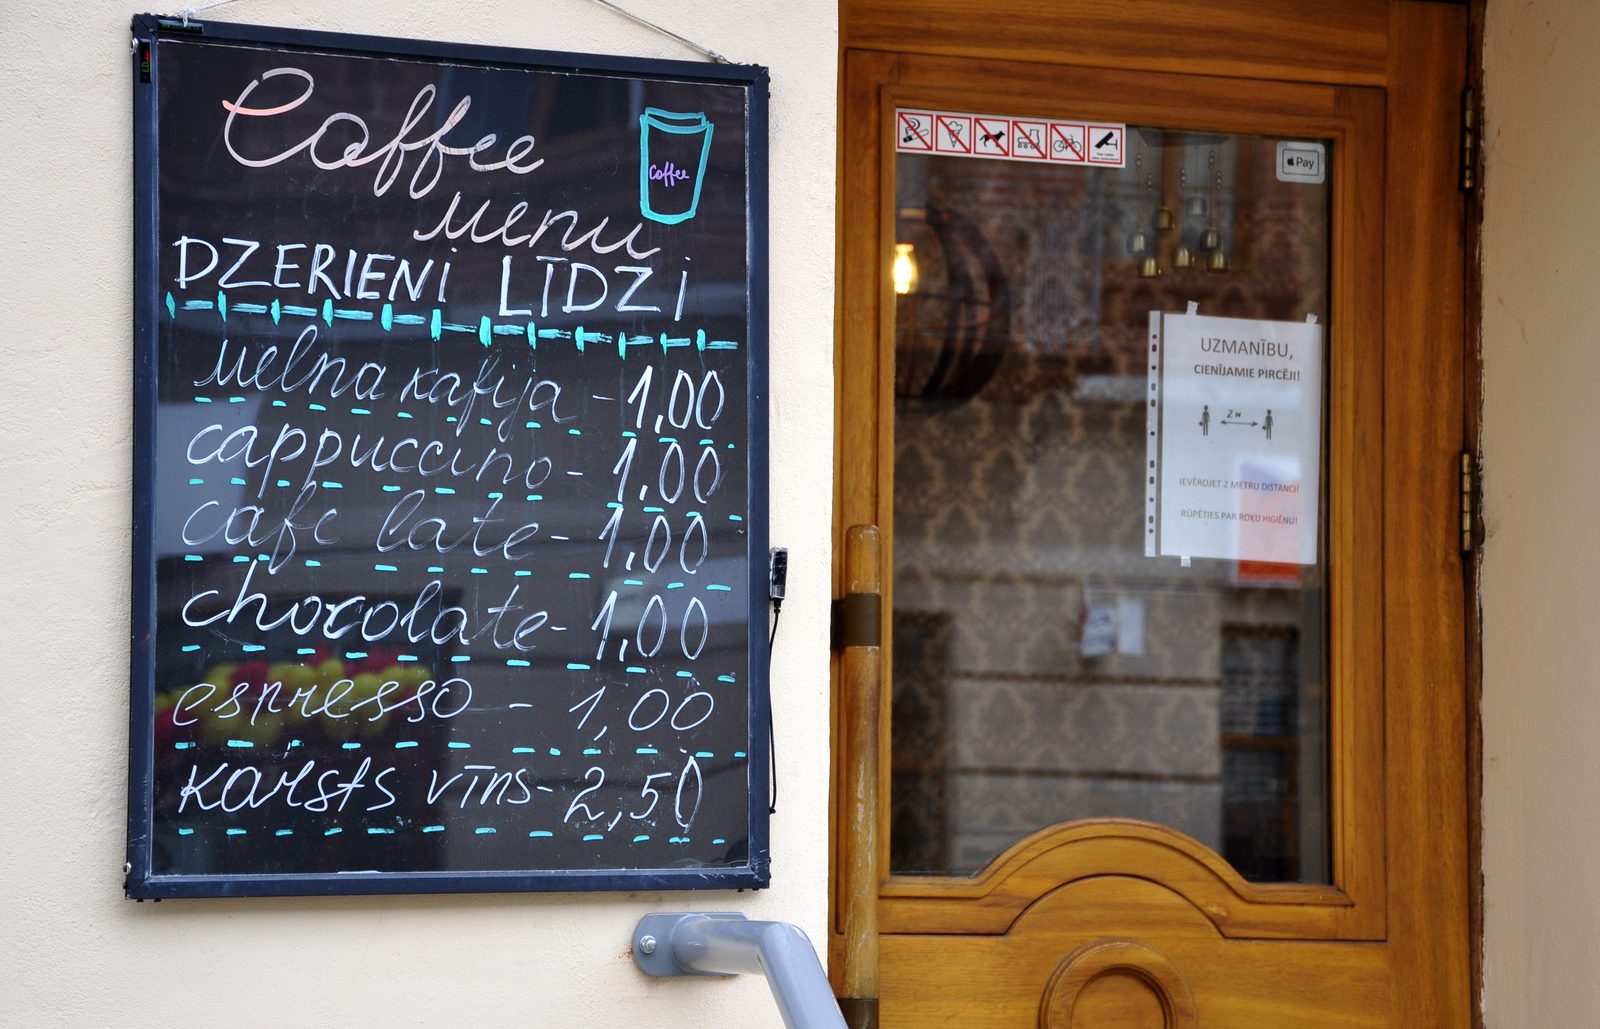 Coffee
menu
Coffee
DZERIENI LĪDZI
melna kafija - 1,00
cappuccino - 1,00
cafe late - 1,00
chocolate - 1,00
espresso - 1,00
karsts vīns - 2,50
Pay
UZMANĪBU,
CIENĪJAMIE PIRCĒJI!
2 M
IEVĒROJET 2 METRU DISTANCI!
RŪPĒTIES PAR ROKU HIGIĒNU!